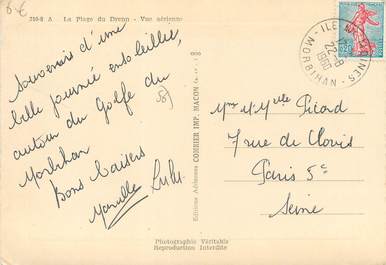 8 €
310-8 A La Plage du Drenn - Vue aérienne
Souvenirs d'une
belle journée ensoleillée,
autour du Golfe du
Morbihan
Bons baisers
ILE
MOINES
22-8
1960
MORBIHAN
0,20
Editions Aériennes COMBIER IMP. MACON
Mme M. Melle Picard
7 rue de Clovis
Paris 5e
Seine
Photographie Véritable
Reproduction Interdite